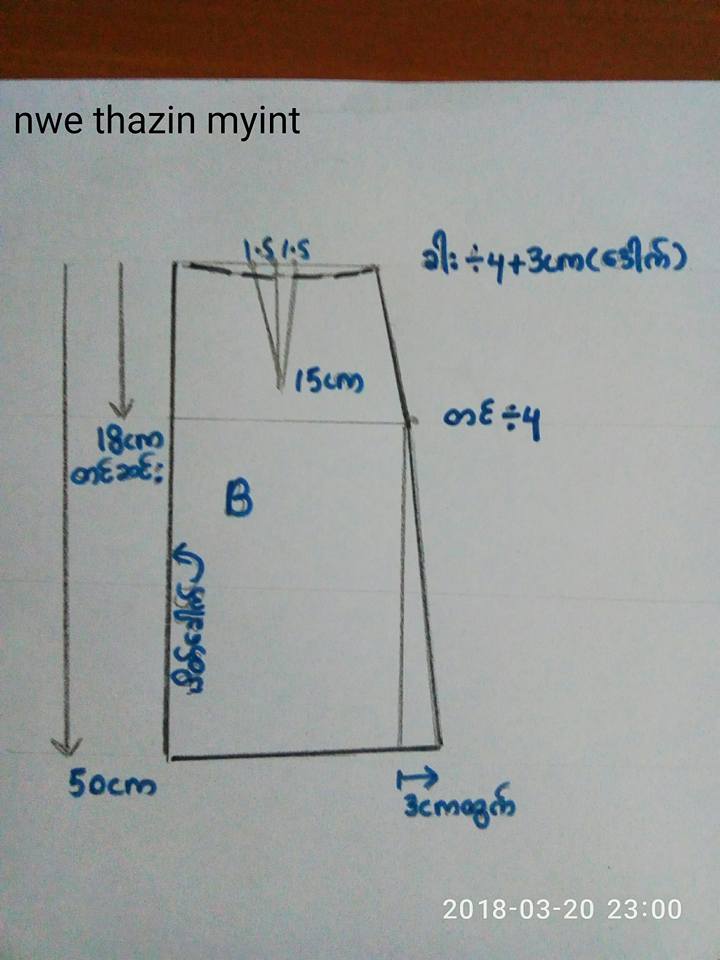 nwe thazin myint
1.5 1.5
ခါး ÷ 4 + 3cm (ဒေါက်)
15cm
တင် ÷ 4
18cm
တင်ဆင်း
B
50cm
3cm ထွက်
2018-03-20 23:00